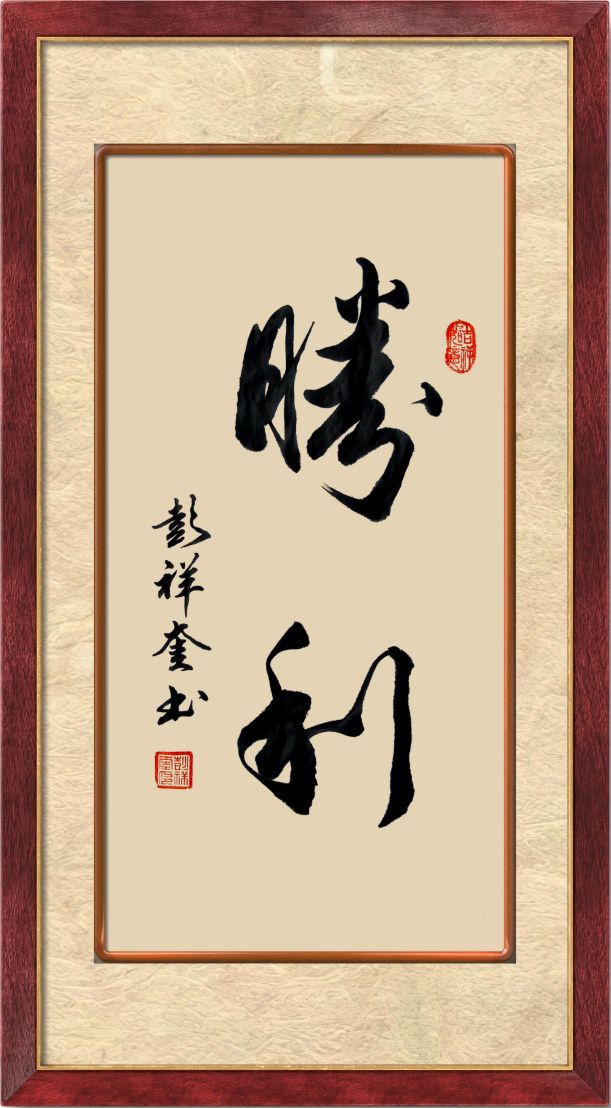 勝利
彭祥奎书